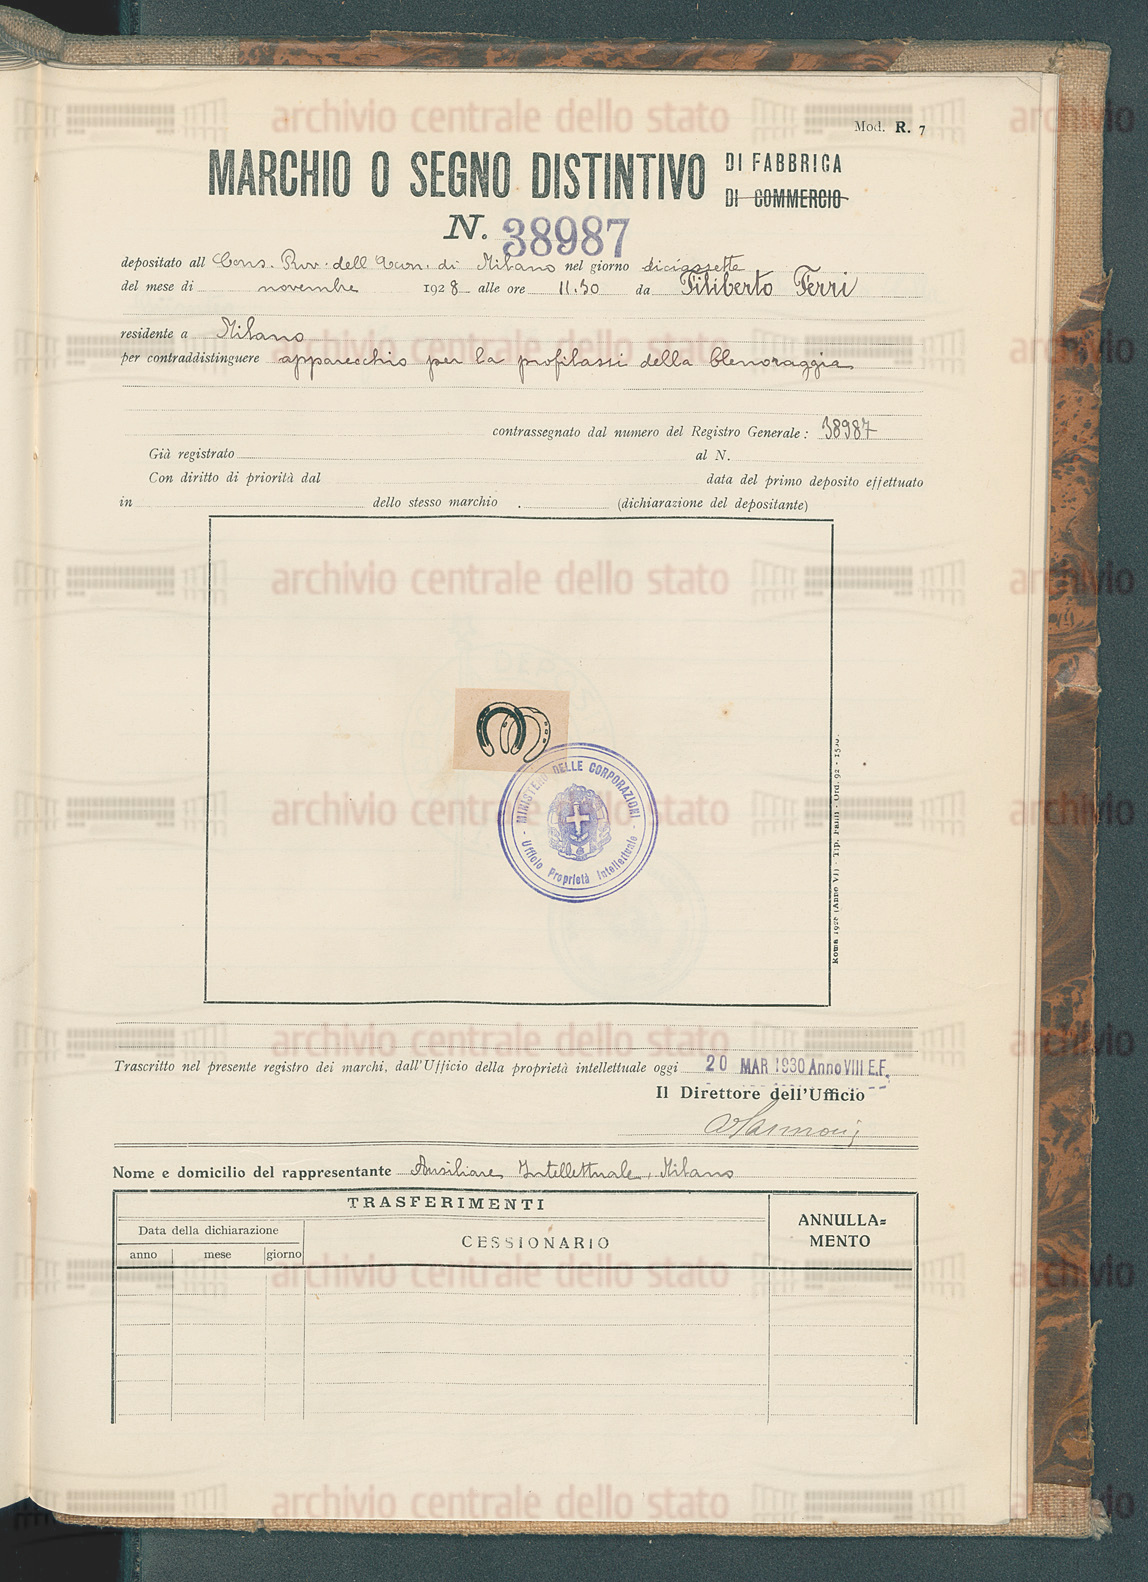 Mod. R. 7
MARCHIO O SEGNO DISTINTIVO DI FABBRICA
DI COMMERCIO
N. 38987
depositato all Cons. Prov. dell'Econ. di Milano nel giorno diciassette
del mese di novembre 1928 alle ore 11.30 da Filiberto Ferri
residente a Milano
per contraddistinguere apparecchio per la profilassi della blenoraggia
contrassegnato dal numero del Registro Generale: 38987
Già registrato al N.
Con diritto di priorità dal data del primo deposito effettuato
in dello stesso marchio . (dichiarazione del depositante)
MINISTERO DELLE CORPORAZIONI
- Ufficio Proprietà Intellettuale -
Roma 1928 (Anno VI) - Tip.
Trascritto nel presente registro dei marchi, dall'Ufficio della proprietà intellettuale oggi 20 MAR 1930 Anno VIII E.F.
Il Direttore dell'Ufficio
Nome e domicilio del rappresentante Ausiliare Intellettuale, Milano
TRASFERIMENTI
ANNULLA=
MENTO
Data della dichiarazione
CESSIONARIO
anno mese giorno
archivio centrale dello stato